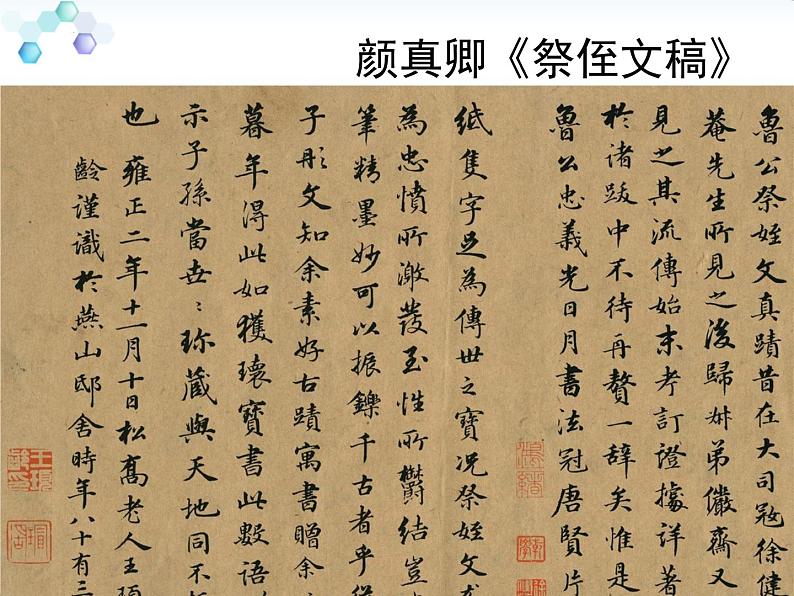 颜真卿《祭侄文稿》
魯公祭姪文真蹟昔在大司寇徐健
菴先生所見之後歸弟儼齋又
見之其流傳始末考訂證據詳著
於諸跋中不待再贅一辭矣惟是
魯公忠義光日月書法冠唐賢片
紙隻字足為傳世之寶況祭姪文
為忠憤所激發至性所鬱結豈
筆精墨妙可以振鑠千古者乎
子彤文知余素好古蹟寓書贈余
暮年得此如獲瓌寶書此數語
示子孫當世〻珍藏與天地同不
也雍正二年十一月十日松喬老人王頊
齡謹識於燕山邸舍時年八十有三